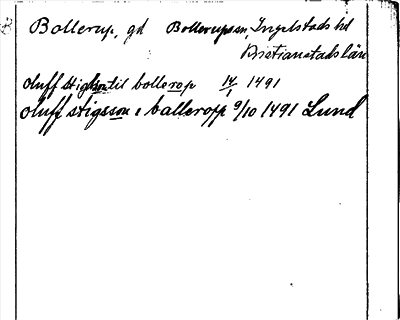 Bollerup, gd Bollerups sn, Ingelstads hd
Kristianstads län
oluff stighson til bollerop 14/1 1491
oluff stigsson i balleropp 9/10 1491 Lund